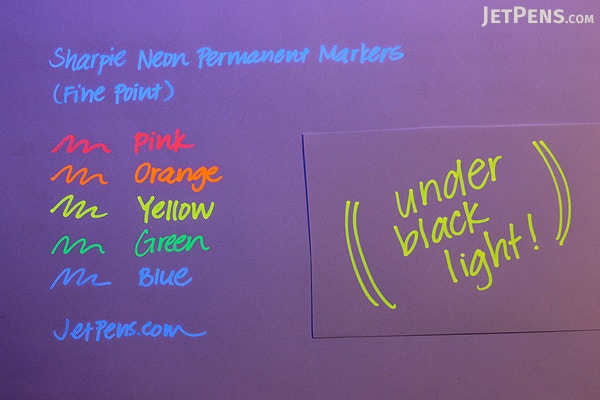 JetPens.com
Sharpie Neon Permanent Markers
(Fine Point)
Pink
Orange
Yellow
Green
Blue
JetPens.com
under
black
light!